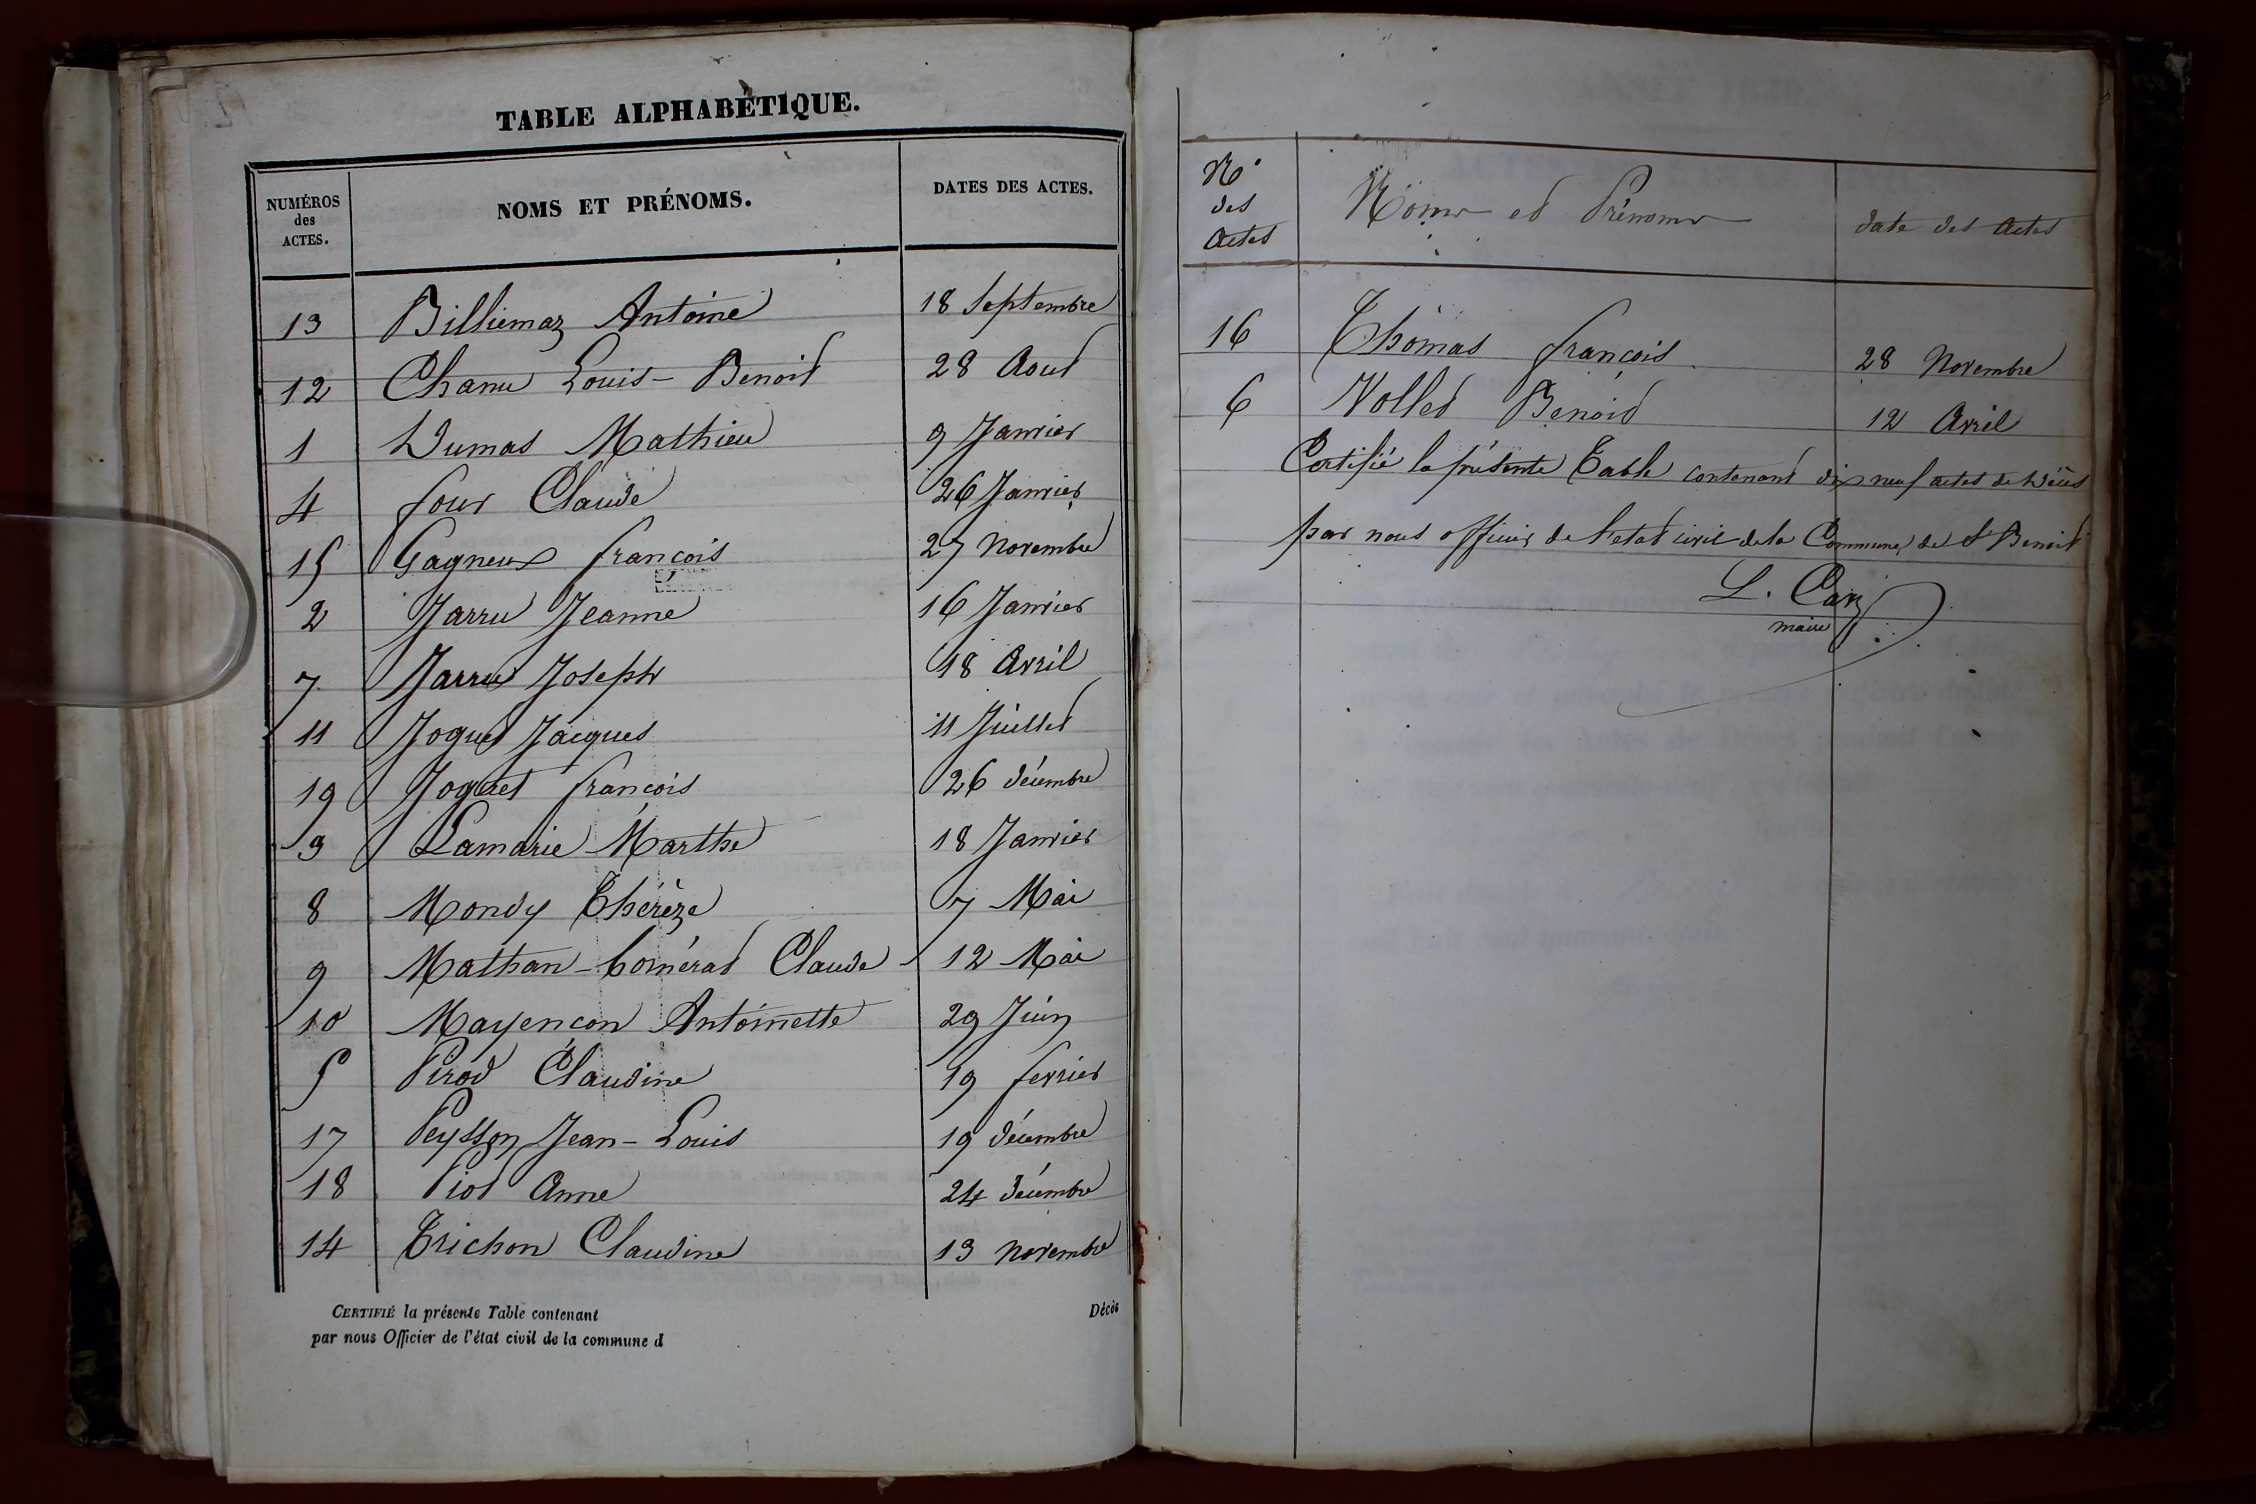 TABLE ALPHABÉTIQUE.
NUMÉROS des ACTES. NOMS ET PRÉNOMS. DATES DES ACTES.
13 Billiemaz Antoine 18 Septembre
12 Chanu Louis-Benoit 28 Aout
1 Dumas Mathieu 9 Janvier
4 four Claude 26 Janvier
15 Gagneux françois 27 Novembre
2 Jarru Jeanne 16 Janvier
7 Jarru Joseph 18 Avril
11 Joguet Jacques 11 Juillet
19 Joguet françois 26 décembre
3 Lamarie Marthe 18 Janvier
8 Mondy Thérèze 7 Mai
9 Mathan- Claude 12 Mai
10 Mayençon Antoinette 29 Juin
5 Pirod Claudine 19 fevrier
17 Peysson Jean-Louis 19 décembre
18 Piot Anne 24 décembre
14 Trichon Claudine 13 novembre
CERTIFIÉ la présente Table contenant Décès
par nous Officier de l'état civil de la commune d
No des Actes Noms et Prénoms date des Actes
16 Thomas françois 28 Novembre
6 Vollet Benoit 12 Avril
Certifié la présente Table contenant dix neuf actes de Décès
par nous officier de l'etat civil de la Commune de St Benoit
L.
maire